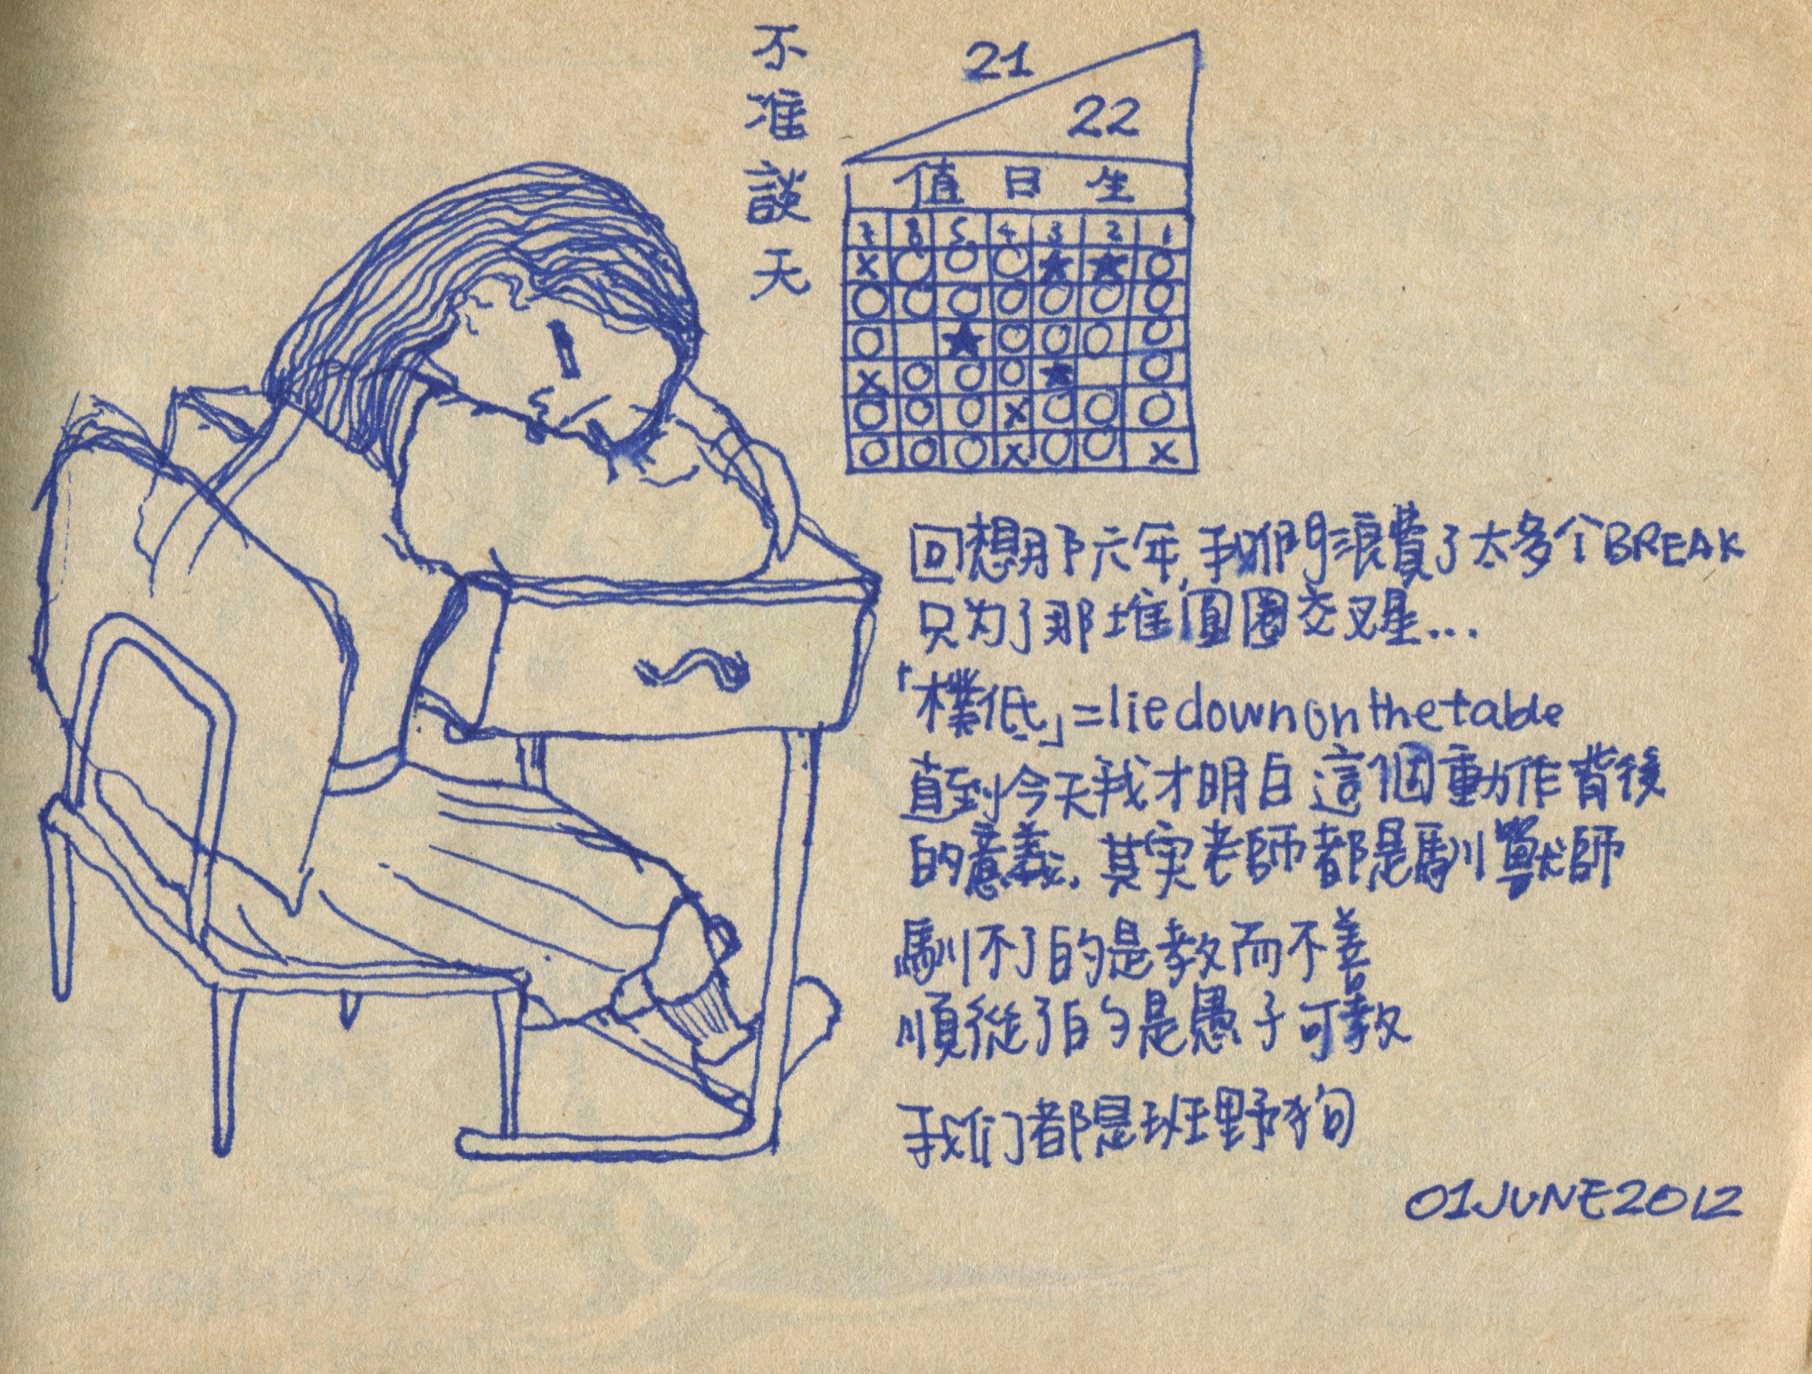 不准談天
21
22
值日生
7 6 5 4 3 2 1
回想那六年,我們浪費了太多个BREAK
只为了那堆圓圈交叉星...
「樸低」=lie down on the table
直到今天我才明白這個動作背後
的意義,其实老師都是馴獸師
馴不了的是教而不善
順從了的是愚子可教
我们都是班野狗
01JUNE2012